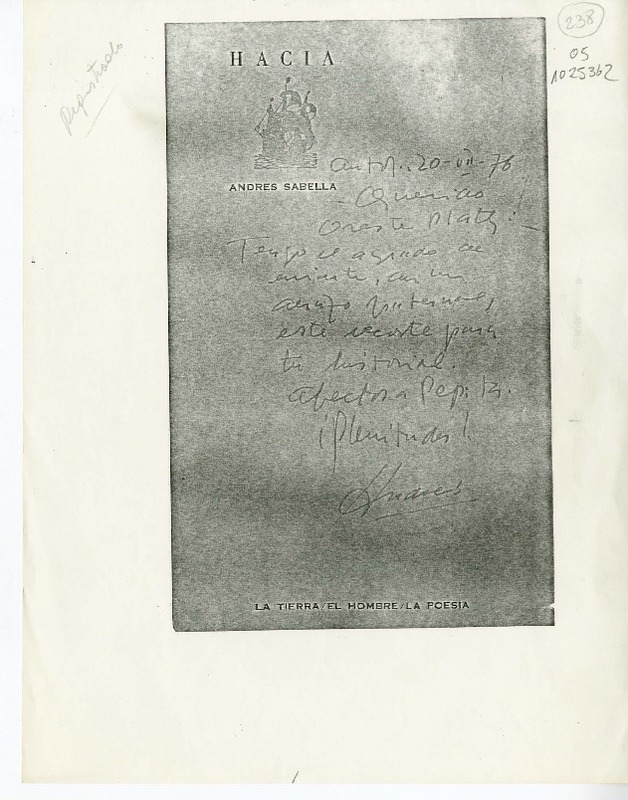 Registrado
238
05
1025362
HACIA
ANDRES SABELLA
Antof. 20-VII-76
-Querido
Oreste Plath:-
Tengo el agrado de
enviarte, con un
abrazo fraternal,
este recorte para
tu historial.
Afectos a Pepita.
¡Plenitudes!
Andrés
LA TIERRA/EL HOMBRE/LA POESIA